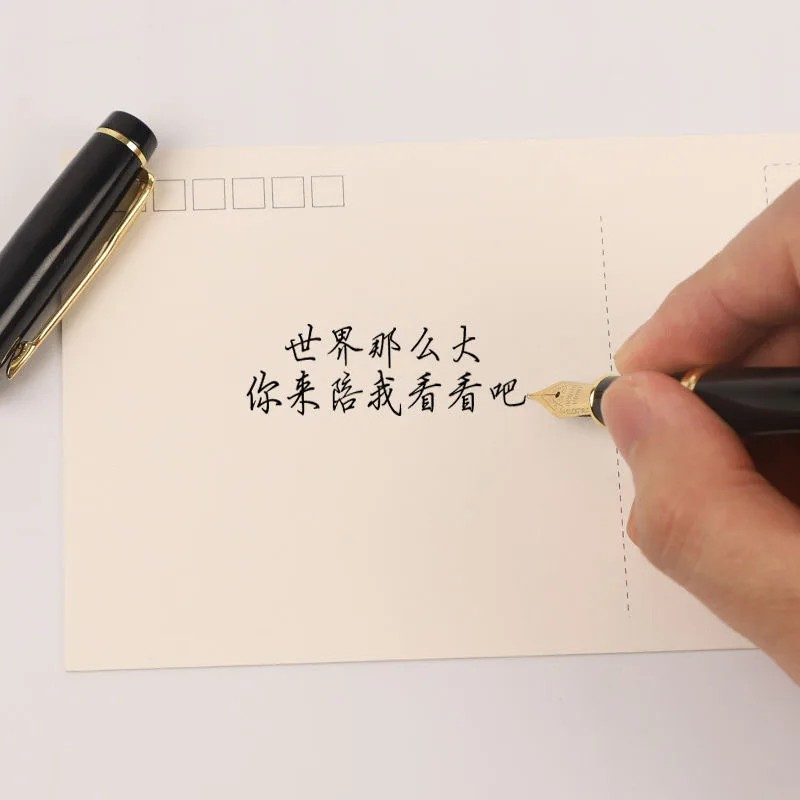 世界那么大
你来陪我看看吧